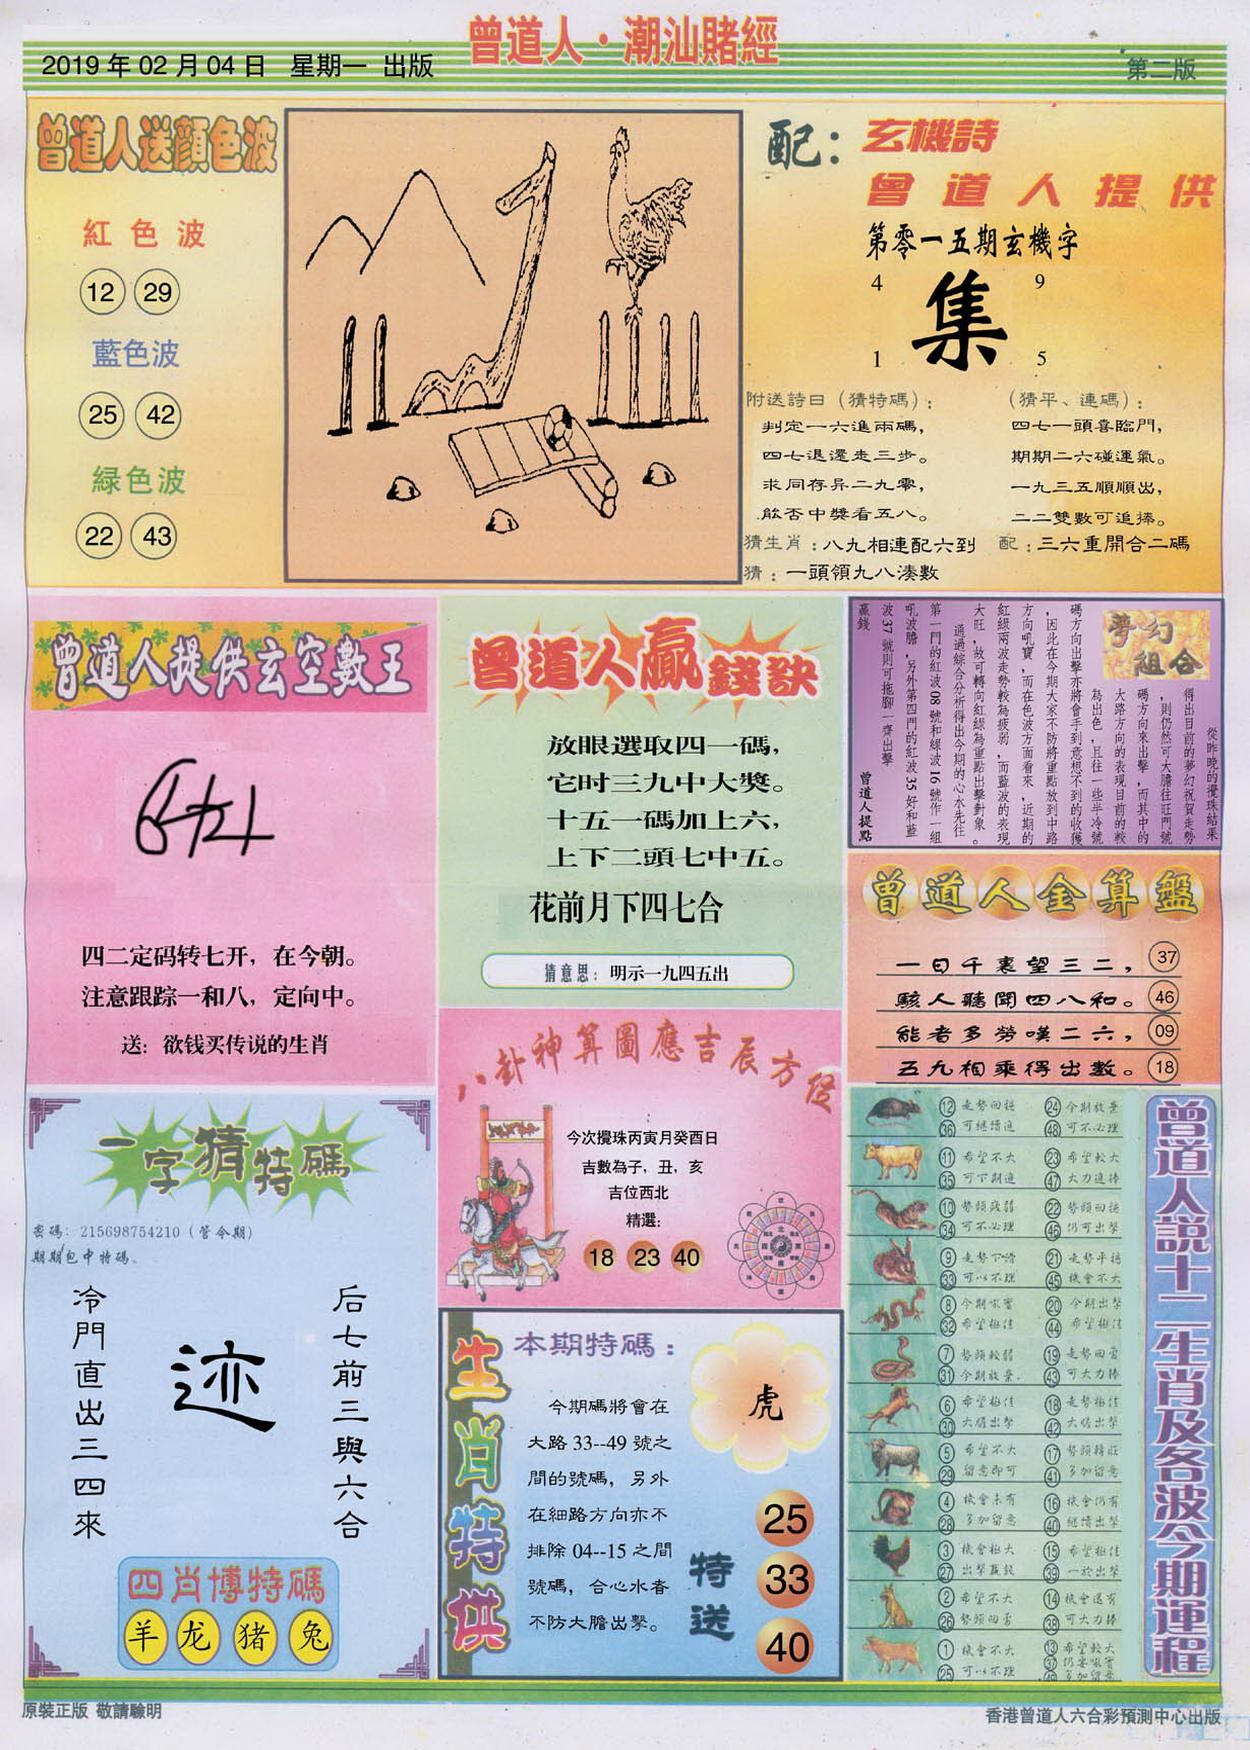 曾道人·潮汕賭經
2019 年 02 月 04 日 星期一 出版
第二版
曾道人送顔色波
紅色波
12 29
藍色波
25 42
緑色波
22 43
配：玄機詩
曾道人提供
第零一五期玄機字
4 9
集
1 5
附送詩曰（猜特碼）：
判定一六進兩碼，
四七退還走三步。
求同存异二九零，
能否中獎看五八。
（猜平、連碼）：
四七一頭喜臨門，
期期二六碰運氣。
一九三五順順出，
二二雙數可追捧。
猜生肖：八九相連配六到
配：三六重開合二碼
猜：一頭領九八湊數
曾道人提供玄空數王
四二定码转七开，在今朝。
注意跟踪一和八，定向中。
送：欲钱买传说的生肖
曾道人贏錢訣
放眼選取四一碼，
它时三九中大獎。
十五一碼加上六，
上下二頭七中五。
花前月下四七合
猜意思：明示一九四五出
夢幻組合
從昨晚的攪珠結果
得出目前的夢幻祝賀走勢
，則仍然可大膽往旺門號
碼方向來出擊，而其中的
大路方向的表現目前的較
為出色，且往一些半冷號
碼方向出擊亦將會手到意想不到的收獲
，因此在今期大家不防將重點放到中路
方向吼寶，而在色波方面看來，近期的
紅綠兩波走勢較為疲弱，而藍波的表現
大旺，故可轉向紅綠為重點出擊對象。
通過綜合分析得出今期的心水先往
第一門的紅波 08 號和綠波 16 號作一組
吼波膽，另外第四門的紅波 35 好和藍
波 37 號則可拖腳一齊出擊
贏錢 曾道人提點
曾道人金算盤
一日千裏望三二，37
駭人聽聞四八和。46
能者多勞嘆二六，09
五九相乘得出數。18
八卦神算圖應吉辰方位
今次攪珠丙寅月癸酉日
吉數為子，丑，亥
吉位西北
精選：
18 23 40
一字猜特碼
密碼：215698754210（管今期）
期期包中特碼。
后七前三與六合
迹
冷門直出三四來
四肖博特碼
羊 龙 猪 兔
生肖特供
本期特碼：
虎
今期碼將會在
大路 33--49 號之
間的號碼，另外
在細路方向亦不
排除 04--15 之間
號碼，合心水者
不防大膽出擊。
特送
25
33
40
曾道人説十二生肖及各波今期運程
12 走勢回穩 24 今期放棄
36 可繼續追 48 可不必理
11 希望不大 23 希望較大
35 可下期追 47 大力追捧
10 勢頭疲弱 22 走勢回穩
34 可不必理 46 仍可出擊
9 走勢下滑 21 走勢平穩
33 可以不理 45 機會不大
8 今期吼實 20 今期出擊
32 希望極佳 44 希望極佳
7 勢頭較弱 19 走勢回勇
31 今期放棄。 43 可大力捧
6 希望極佳 18 走勢極佳
30 大膽出擊 42 大膽出擊
5 希望不大 17 勢頭精旺
29 留意即可 41 多加留意
4 機會未有 16 機會仍有
28 多加留意 40 繼續出擊
3 機會極大 15 希望極佳
27 出擊贏錢 39 一於出擊
2 希望不大 14 機會還有
26 勢頭回勇 38 可大力捧
1 機會不大 13 希望較大
25 可以不理 37 仍要吼實
49 多加留意
原裝正版 敬請驗明
香港曾道人六合彩預測中心出版